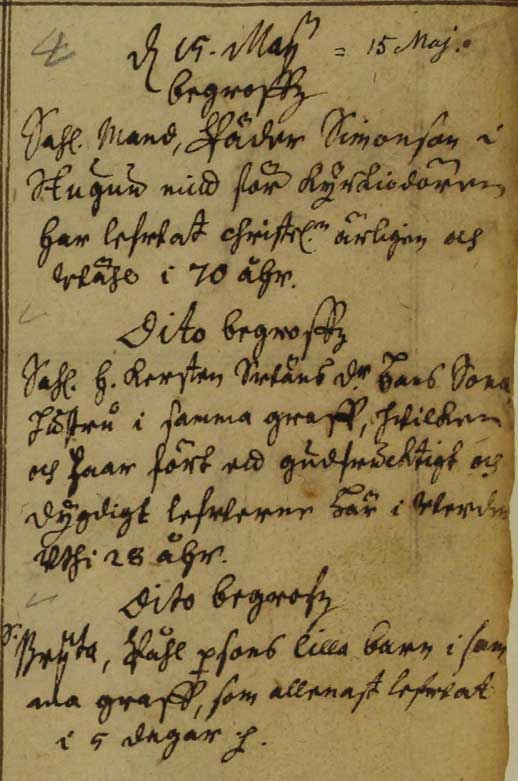 4
D 15. Maÿ = 15 Maj.
begroffz
Sahl. Mand, Päder Simonson i
Stugun mild för Kÿrkiodören
har lefwat christel.n ärligen och
wähl i 70 åhr.
Dito begroffz
Sahl. H. Kersten Swäns dr Hans Sons
hustru i samma graff, hvilken
och haar fört ett gudfrucktigt och
dÿgdigt lefwerne här i Werden
Uthi 28 åhr.
Dito begrofz
Påhl persons lilla barn i sam
ma graff, som allenast lefwat
i 5 dagar